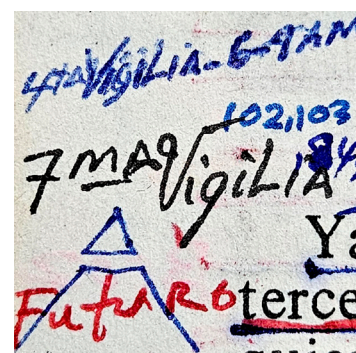 4TA Vigilia - G-TAN
102,103
7 MA Vigilia
Ya
FuTuRo terce